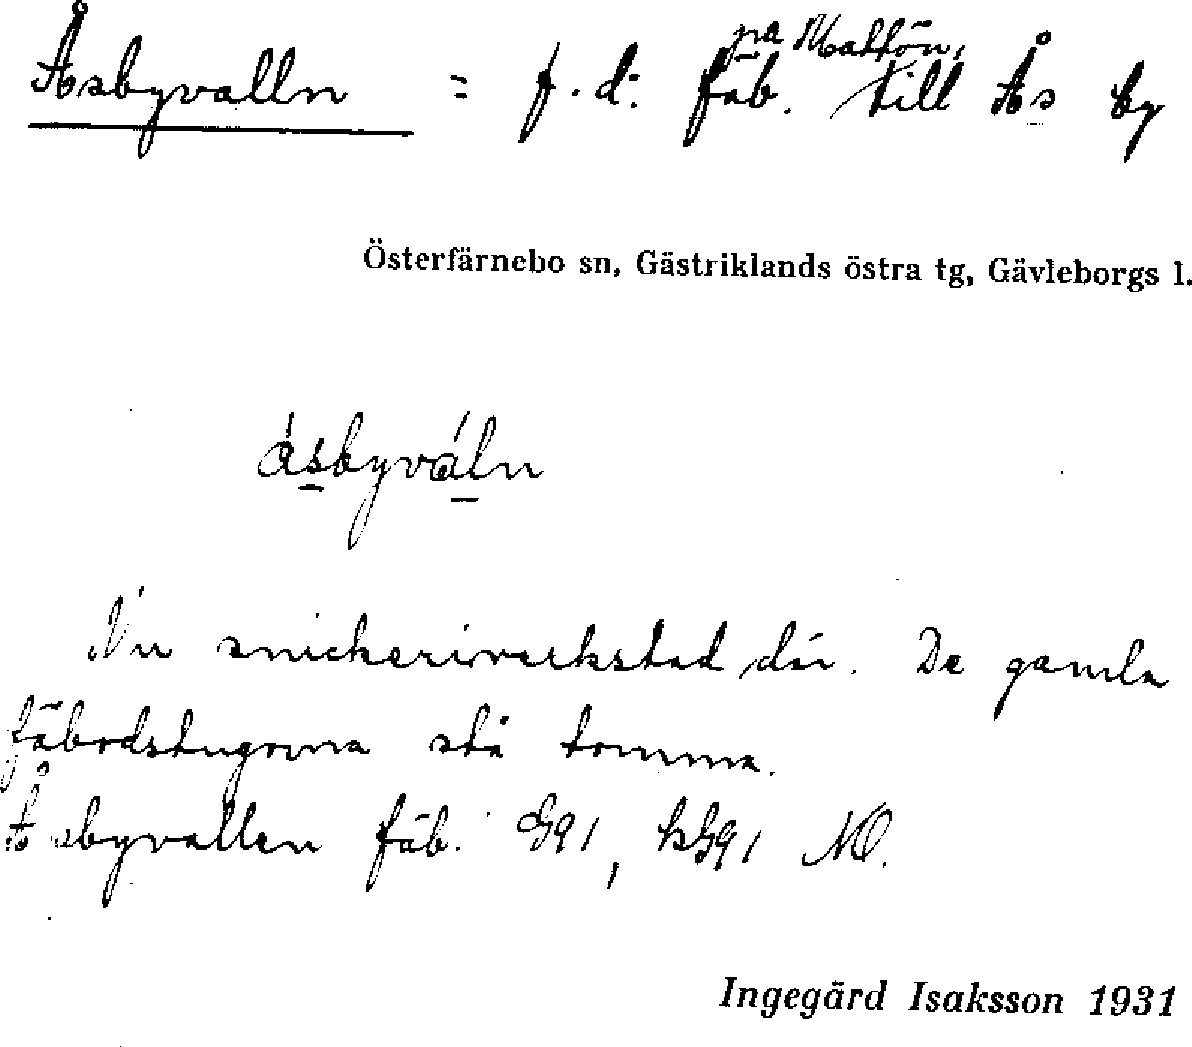 Åsbyvalln = f.d. fäb. på Mattön, till Ås by
Österfärnebo sn, Gästriklands östra tg, Gävleborgs l.
åsbyváln
Nu snickeriverkstad där. De gamla
fäbodstugorna stå tomma.
Åsbyvallen fäb. G91, hG91 NO.
Ingegärd Isaksson 1931